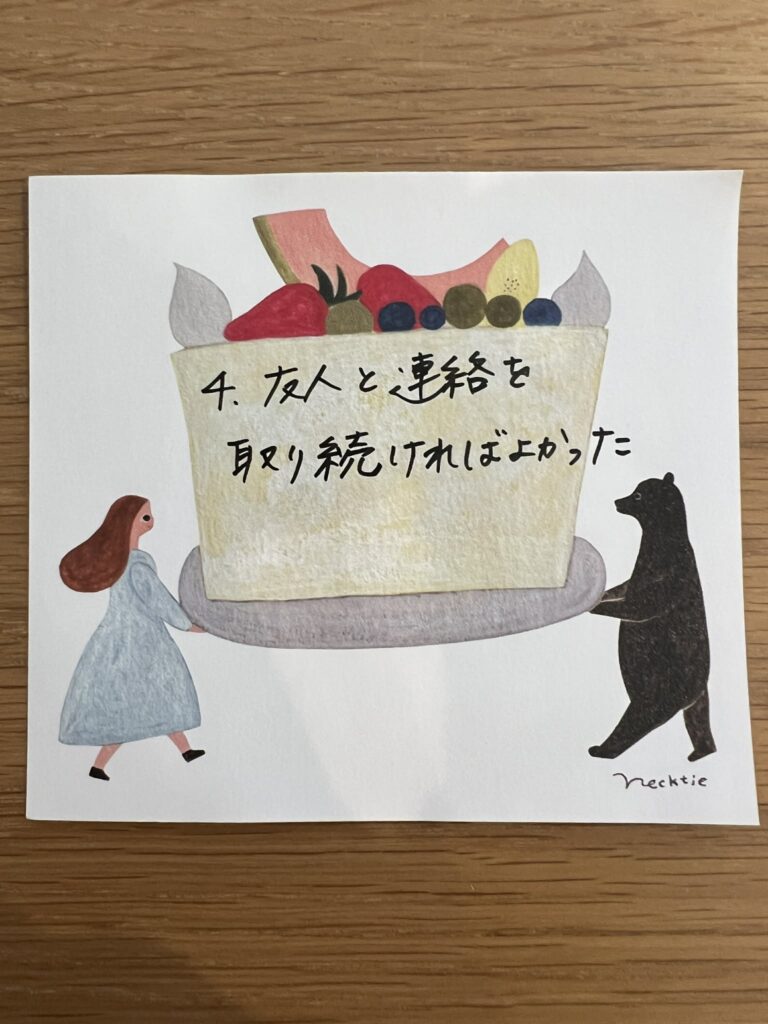 4. 友人と連絡を
取り続ければよかった
necktie